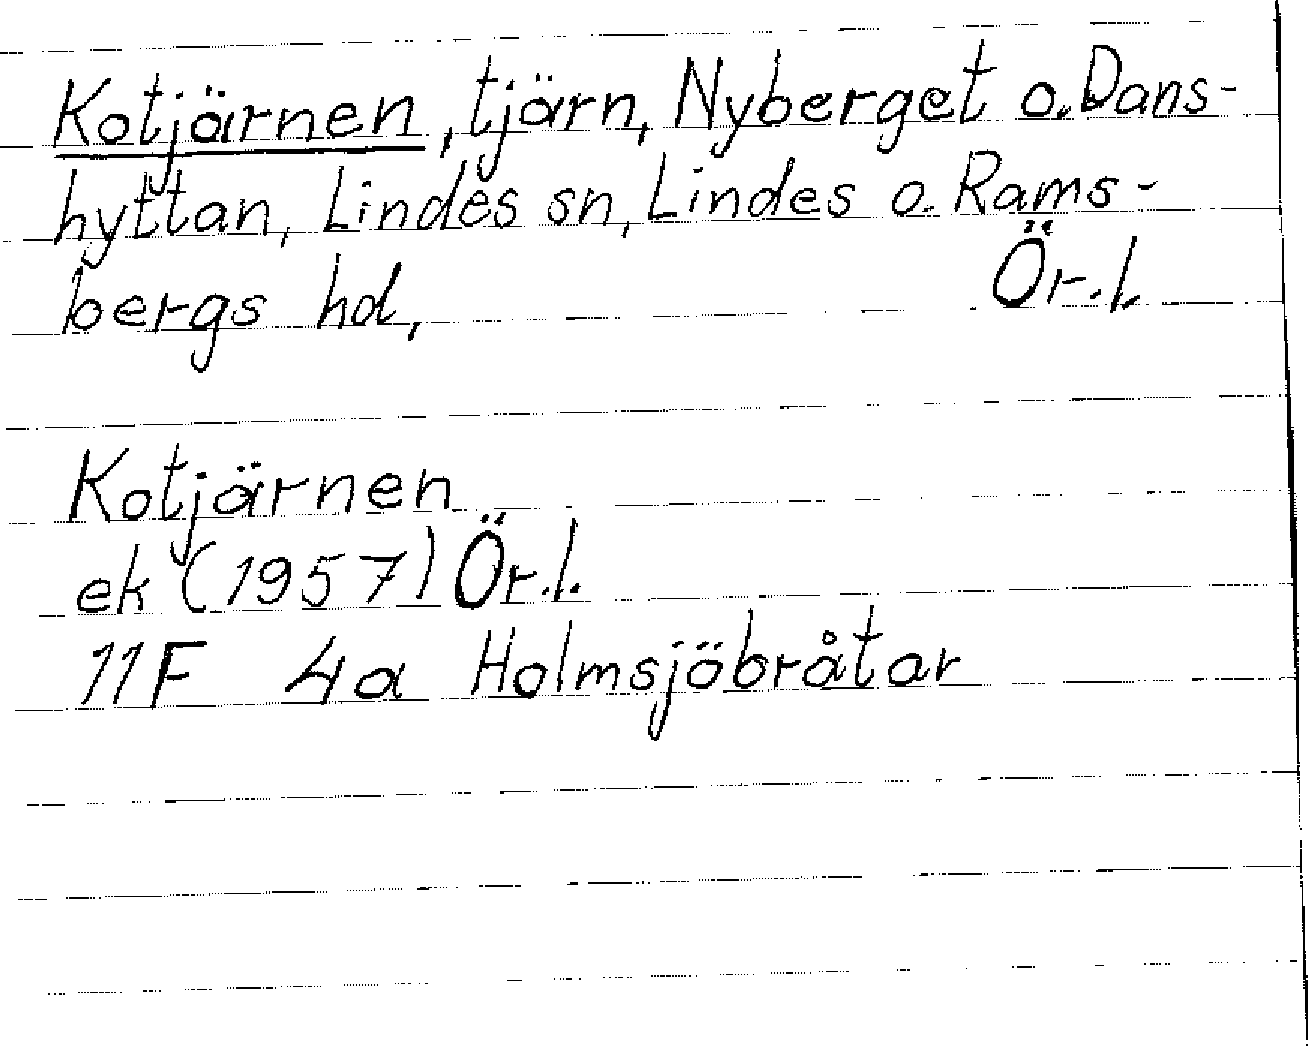 Kotjärnen, tjärn, Nyberget o. Dans-
hyttan, Lindes sn, Lindes o. Rams-
bergs hd, Ör. l.
Kotjärnen
ek (1957) Ör. l.
11F 4a Holmsjöbråtar